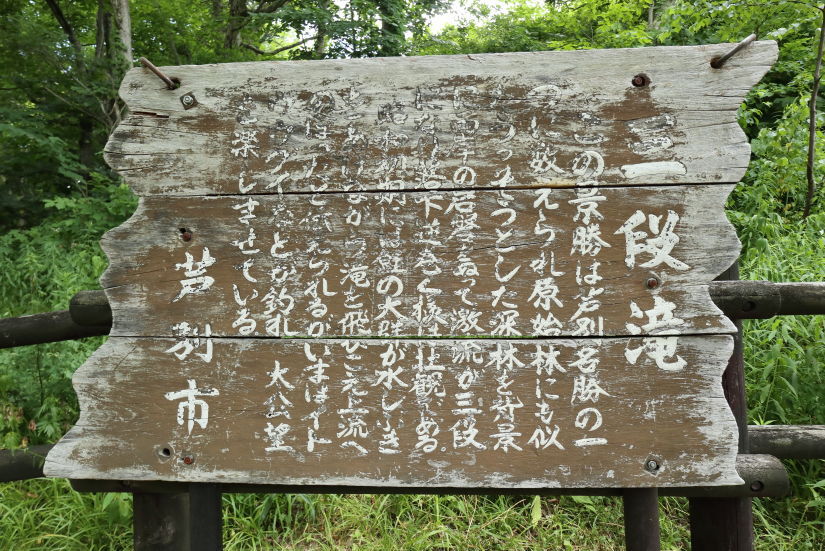 三段滝
この景勝は芦別名勝の一
つに数えられ原始林にも似
うっそうとした深林を背景
に両岸の岩盤 って激流が三段
になり落下逆まく様は壮観である
昭和初期には鮭の大群が水しぶき
をあげながら滝を飛びこえ上流へ
のぼったと伝えられるがいまはイト
ウグイなどが釣れ 太公望
を楽しませている
芦別市